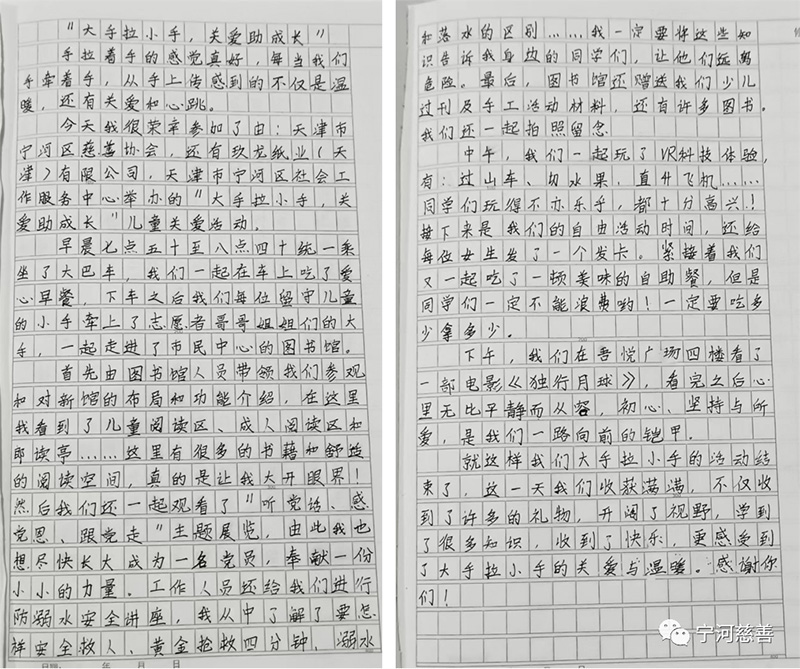 "大手拉小手，关爱助成长"
手拉着手的感觉真好，每当我们
手牵着手，从手上传感到的不仅是温
暖，还有关爱和心跳。
今天我很荣幸参加了由：天津市
宁河区慈善协会，还有玖龙纸业（天
津）有限公司，天津市宁河区社会工
作服务中心举办的"大手拉小手，关
爱助成长"儿童关爱活动。
早晨七点五十至八点四十统一乘
坐了大巴车，我们一起在车上吃了爱
心早餐，下车之后我们每位留守儿童
的小手牵上了志愿者哥哥姐姐们的大
手，一起走进了市民中心的图书馆。
首先由图书馆人员带领我们参观
和对新馆的布局和功能介绍，在这里
我看到了儿童阅读区、成人阅读区和
郎读亭……这里有很多的书籍和舒适
的阅读空间，真的是让我大开眼界！
然后我们还一起观看了"听党话、感
党恩、跟党走"主题展览，由此我也
想尽快长大成为一名党员，奉献一份
小小的力量。工作人员还给我们进行
防溺水安全讲座，我从中了解了要怎
样安全救人、黄金抢救四分钟，溺水
日期： 年 月 日
和落水的区别……我一定要将这些知
识告诉我身边的同学们，让他们远离
危险。最后，图书馆还赠送我们少儿
过刊及手工活动材料，还有许多图书。
我们还一起拍照留念
中午，我们一起玩了VR科技体验，
有：过山车、切水果、直升飞机……
同学们玩得不亦乐乎，都十分高兴！
接下来是我们的自由活动时间，还给
每位女生发了一个发卡。紧接着我们
又一起吃了一顿美味的自助餐，但是
同学们一定不能浪费哟！一定要吃多
少拿多少。
下午，我们在吾悦广场四楼看了
一部电影《独行月球》，看完之后心
里无比平静而从容，初心、坚持与所
爱，是我们一路向前的铠甲。
就这样我们大手拉小手的活动结
束了，这一天我们收获满满，不仅收
到了许多的礼物，开阔了视野，学到
了很多知识，收到了快乐，更感受到
了大手拉小手的关爱与温暖。感谢你
们！
宁河慈善